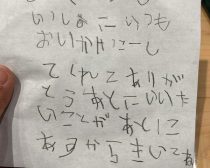 いしょにいつも
おいかけこーし
てくれてありが
とうあとにいいた
いことがあとに
あるからきいてね